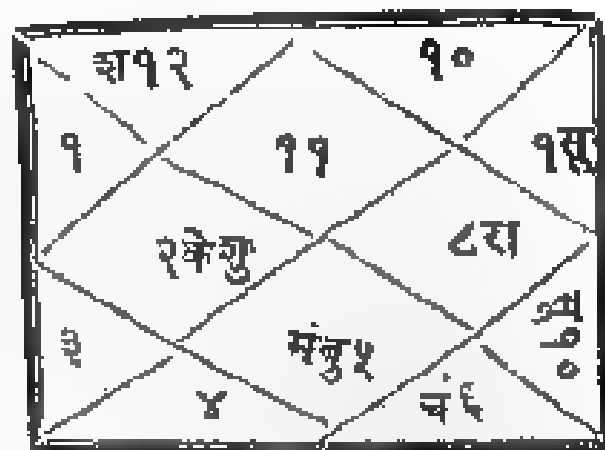 श१२
१०
१
११
१सू
२केगु
८रा
३
मंबु५
शु७०
४
चं६